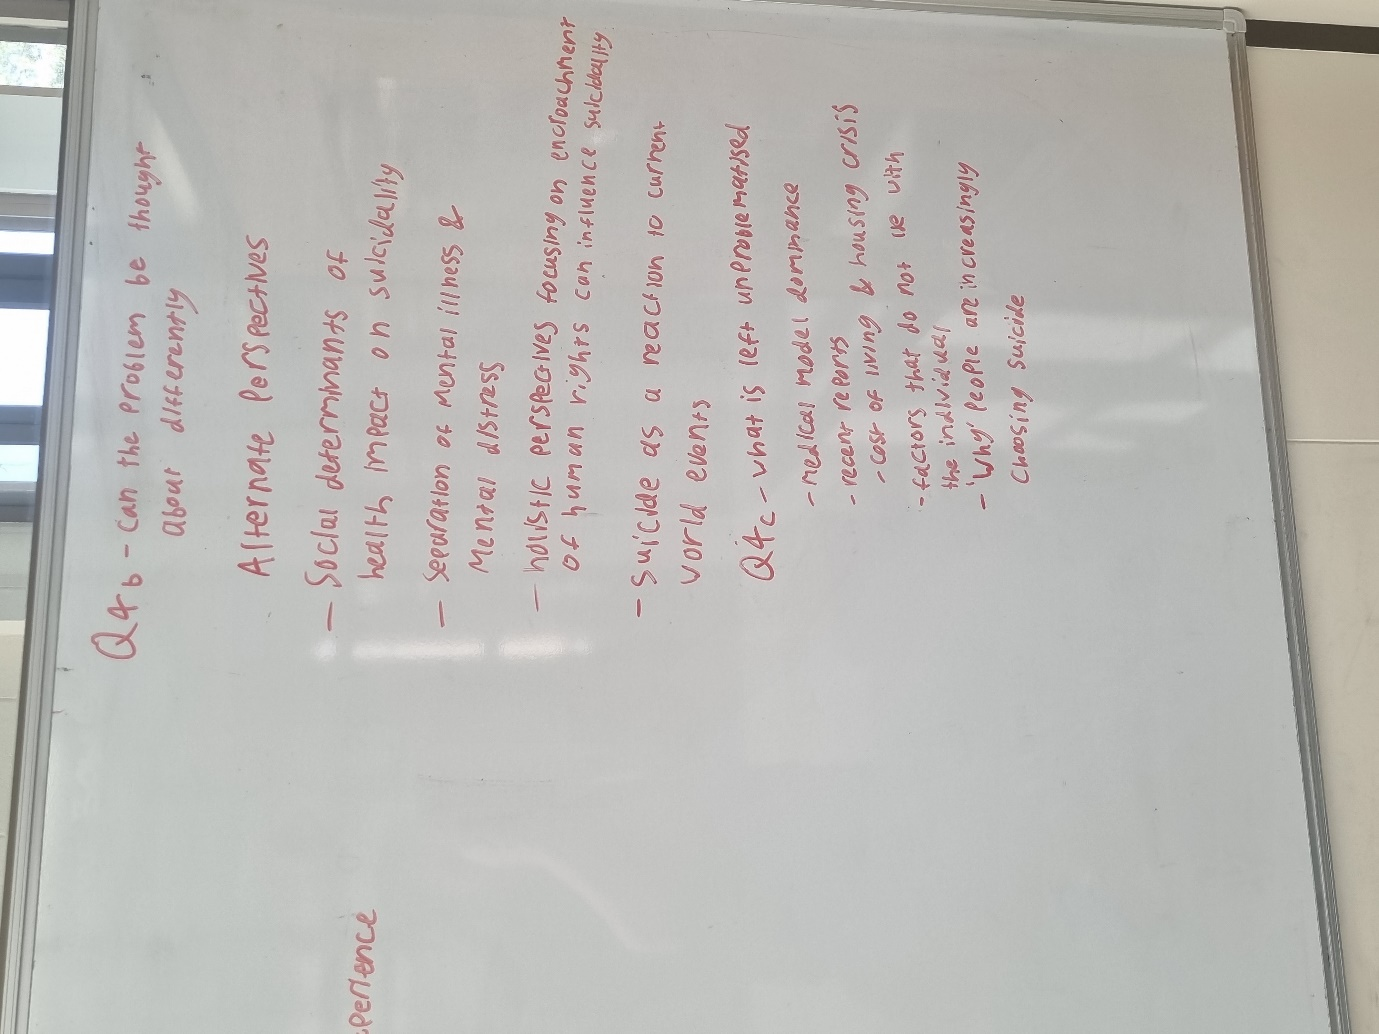 Q4b - can the problem be thought
about differently
Alternate perspectives
- Social determinants of
health impact on suicidality
- Separation of mental illness &
Mental distress
- holistic perspectives focusing on encroachment
of human rights can influence suicidality
- Suicide as a reaction to current
world events
Q4c - what is left unproblematised
- medical model dominance
- recent reports
- cost of living & housing crisis
- factors that do not lie with
the individual
- 'Why' people are increasingly
choosing suicide
perience